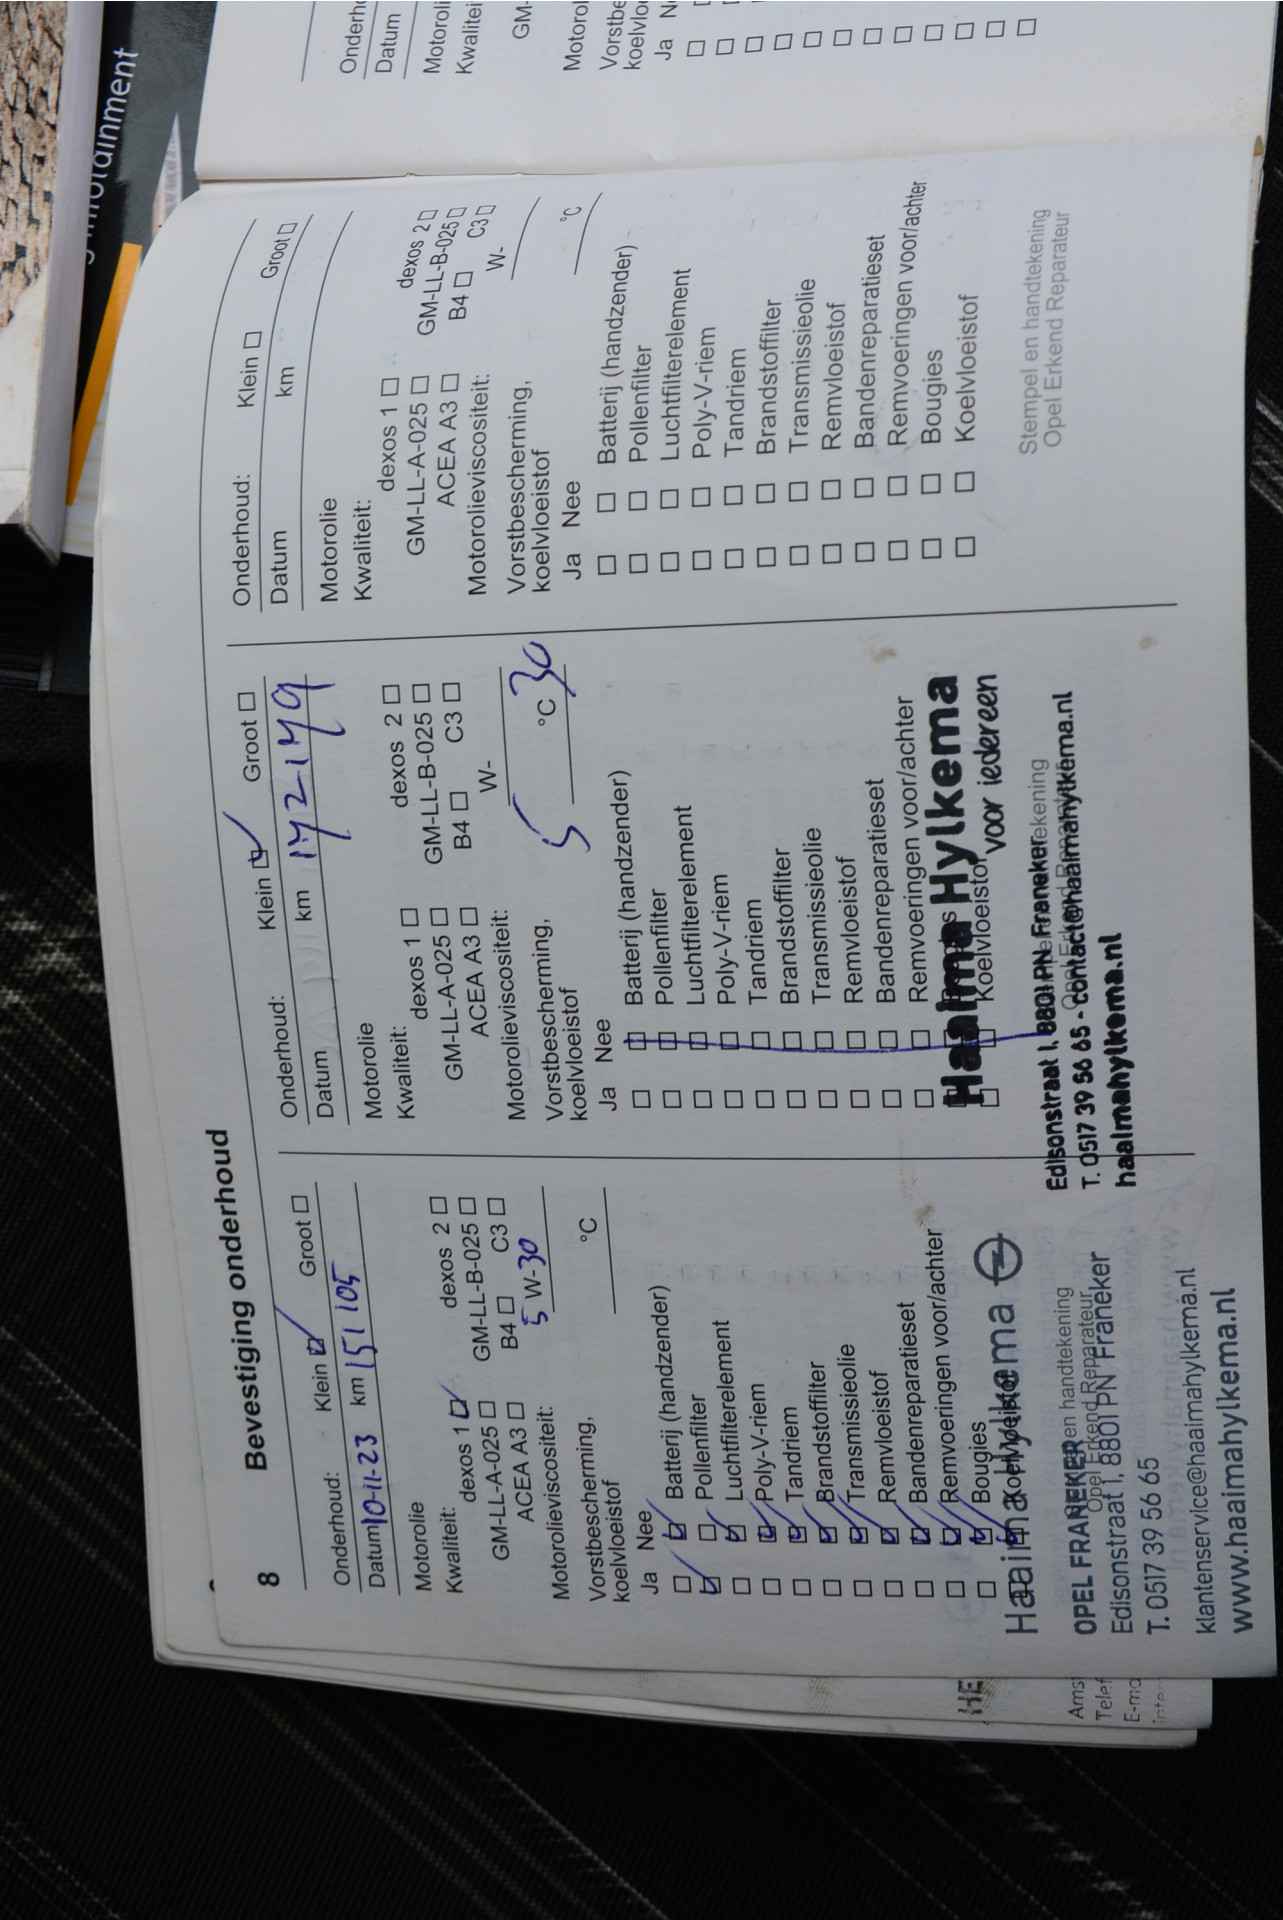 8 Bevestiging onderhoud
Onderhoud: Klein ☑ Groot ☐
Datum 10-11-23 km 151 105
Motorolie
Kwaliteit:
dexos 1 ☑ dexos 2 ☐
GM-LL-A-025 ☐ GM-LL-B-025 ☐
ACEA A3 ☐ B4 ☐ C3 ☐
Motorolieviscositeit: 5 W-30
Vorstbescherming,
koelvloeistof °C
Ja Nee
☐ ☑ Batterij (handzender)
☑ ☐ Pollenfilter
☐ ☑ Luchtfilterelement
☐ ☑ Poly-V-riem
☐ ☑ Tandriem
☐ ☑ Brandstoffilter
☐ ☑ Transmissieolie
☐ ☑ Remvloeistof
☐ ☑ Bandenreparatieset
☐ ☑ Remvoeringen voor/achter
☐ ☑ Bougies
☐ ☑ Koelvloeistof
Haaima Hylkema
en handtekening
Opel Erkend Reparateur
OPEL FRANEKER
Edisonstraat 1, 8801 PN Franeker
T. 0517 39 56 65
klantenservice@haaimahylkema.nl
www.haaimahylkema.nl
Onderhoud: Klein ☑ Groot ☐
Datum km 172179
Motorolie
Kwaliteit:
dexos 1 ☐ dexos 2 ☐
GM-LL-A-025 ☐ GM-LL-B-025 ☐
ACEA A3 ☐ B4 ☐ C3 ☐
Motorolieviscositeit: W-
5 30
Vorstbescherming,
koelvloeistof °C
Ja Nee
☐ ☐ Batterij (handzender)
☐ ☐ Pollenfilter
☐ ☐ Luchtfilterelement
☐ ☐ Poly-V-riem
☐ ☐ Tandriem
☐ ☐ Brandstoffilter
☐ ☐ Transmissieolie
☐ ☐ Remvloeistof
☐ ☐ Bandenreparatieset
☐ ☐ Remvoeringen voor/achter
☐ ☐ Bougies
☐ ☐ Koelvloeistof
Haaima Hylkema
voor iedereen
Edisonstraat 1, 8801 PN Franeker
T. 0517 39 56 65 - contact@haaimahylkema.nl
haaimahylkema.nl
Onderhoud: Klein ☐ Groot ☐
Datum km
Motorolie
Kwaliteit:
dexos 1 ☐ dexos 2 ☐
GM-LL-A-025 ☐ GM-LL-B-025 ☐
ACEA A3 ☐ B4 ☐ C3 ☐
Motorolieviscositeit: W-
Vorstbescherming,
koelvloeistof °C
Ja Nee
☐ ☐ Batterij (handzender)
☐ ☐ Pollenfilter
☐ ☐ Luchtfilterelement
☐ ☐ Poly-V-riem
☐ ☐ Tandriem
☐ ☐ Brandstoffilter
☐ ☐ Transmissieolie
☐ ☐ Remvloeistof
☐ ☐ Bandenreparatieset
☐ ☐ Remvoeringen voor/achter
☐ ☐ Bougies
☐ ☐ Koelvloeistof
Stempel en handtekening
Opel Erkend Reparateur
Datum
Motoroli
Kwalitei
GM-
Motorol
Vorstbe
koelvloe
Ja
infotainment